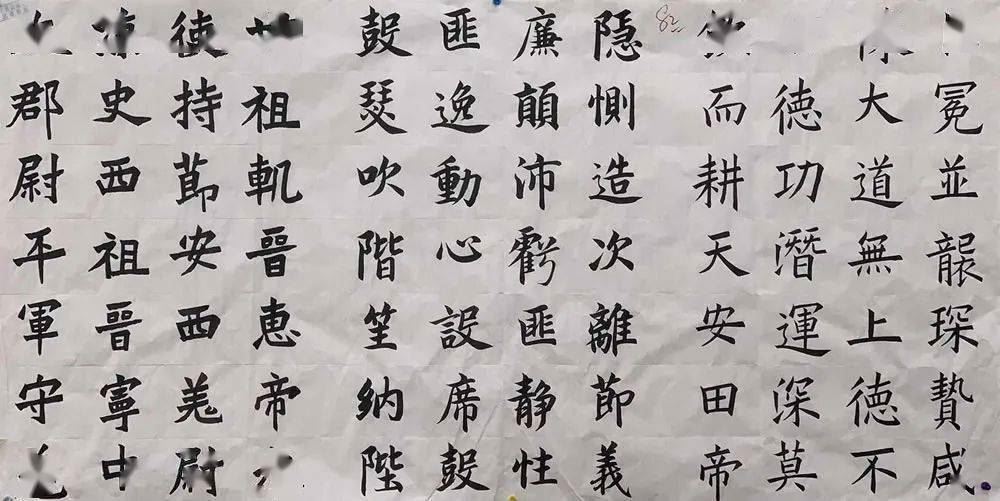 冕並襲琛贄咸
大道無上徳不
徳功潛運深莫
而耕天安田帝
隐惻造次離節義
廉顛沛虧匪静性
匪逸動心設席鼓
鼓瑟吹階笙納陛
祖軌晉恵帝
使持節安西羌尉
史西祖晉寧中
郡尉平軍守